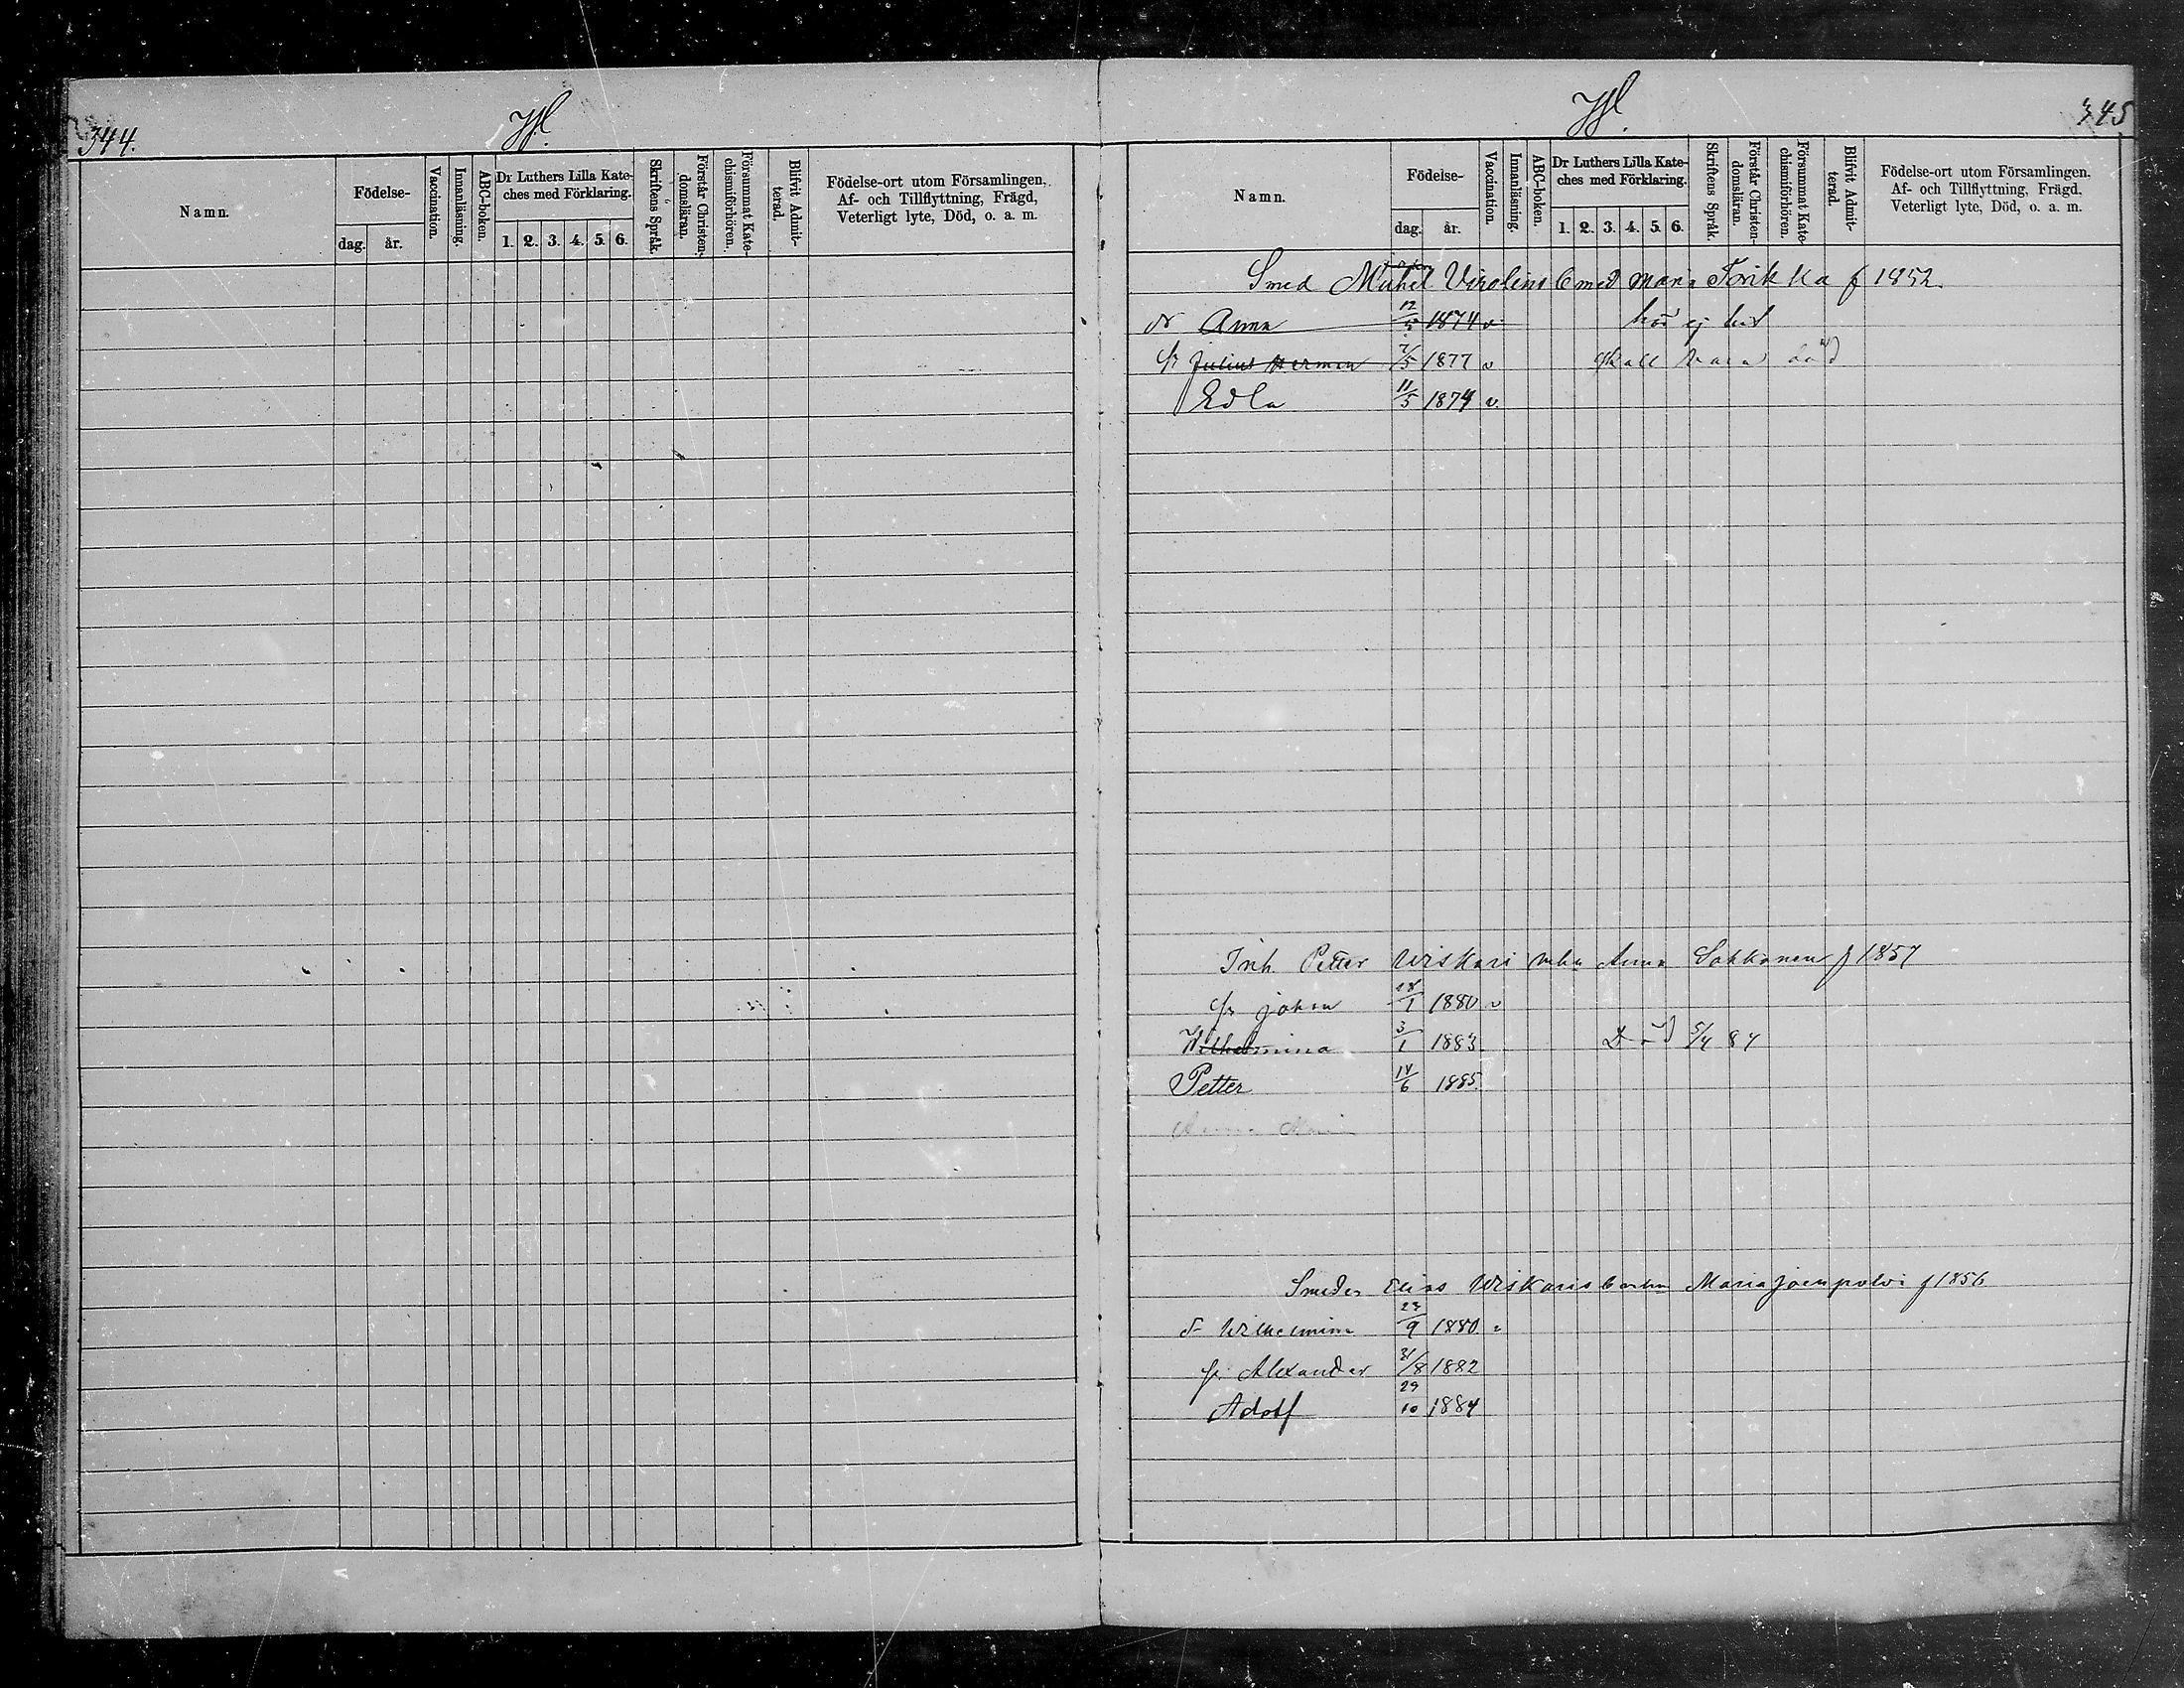 344.
Namn.
Födelse-
dag. år.
Vaccination.
Innanläsning.
ABC-boken.
Dr Luthers Lilla Kate-
ches med Förklaring.
1. 2. 3. 4. 5. 6.
Skriftens Språk.
Förstår Christen-
domsläran.
Försummat Kate-
chismiförhören.
Blifvit Admit-
terad.
Födelse-ort utom Församlingen,
Af- och Tillflyttning, Frägd,
Veterligt lyte, Död, o. a. m.
345
Namn.
Födelse-
dag. år.
Vaccination.
Innanläsning.
ABC-boken.
Dr Luthers Lilla Kate-
ches med Förklaring.
1. 2. 3. 4. 5. 6.
Skriftens Språk.
Förstår Christen-
domsläran.
Försummat Kate-
chismiförhören.
Blifvit Admit-
terad.
Födelse-ort utom Församlingen.
Af- och Tillflyttning, Frägd,
Veterligt lyte, Död, o. a. m.
Smed Mikel Virolens med Maria f 1852.
Anna 12/5 1874 v hör ej hit
Julius Herman 7/5 1877 v skall vara död
Edla 11/5 1874 v.
Inh. Petter Wiskari Anna Sakkonen f 1857
Johan 28/1 1880 v
Wilhelmina 3/1 1883 Död 5/4 84
Petter 14/6 1885.
Anna Maria
Elias Wiskaris Maria Joenpolvi f 1856
Wilhelmina 9 1880
Alexander 31/8 1882
Adolf 29/10 1884